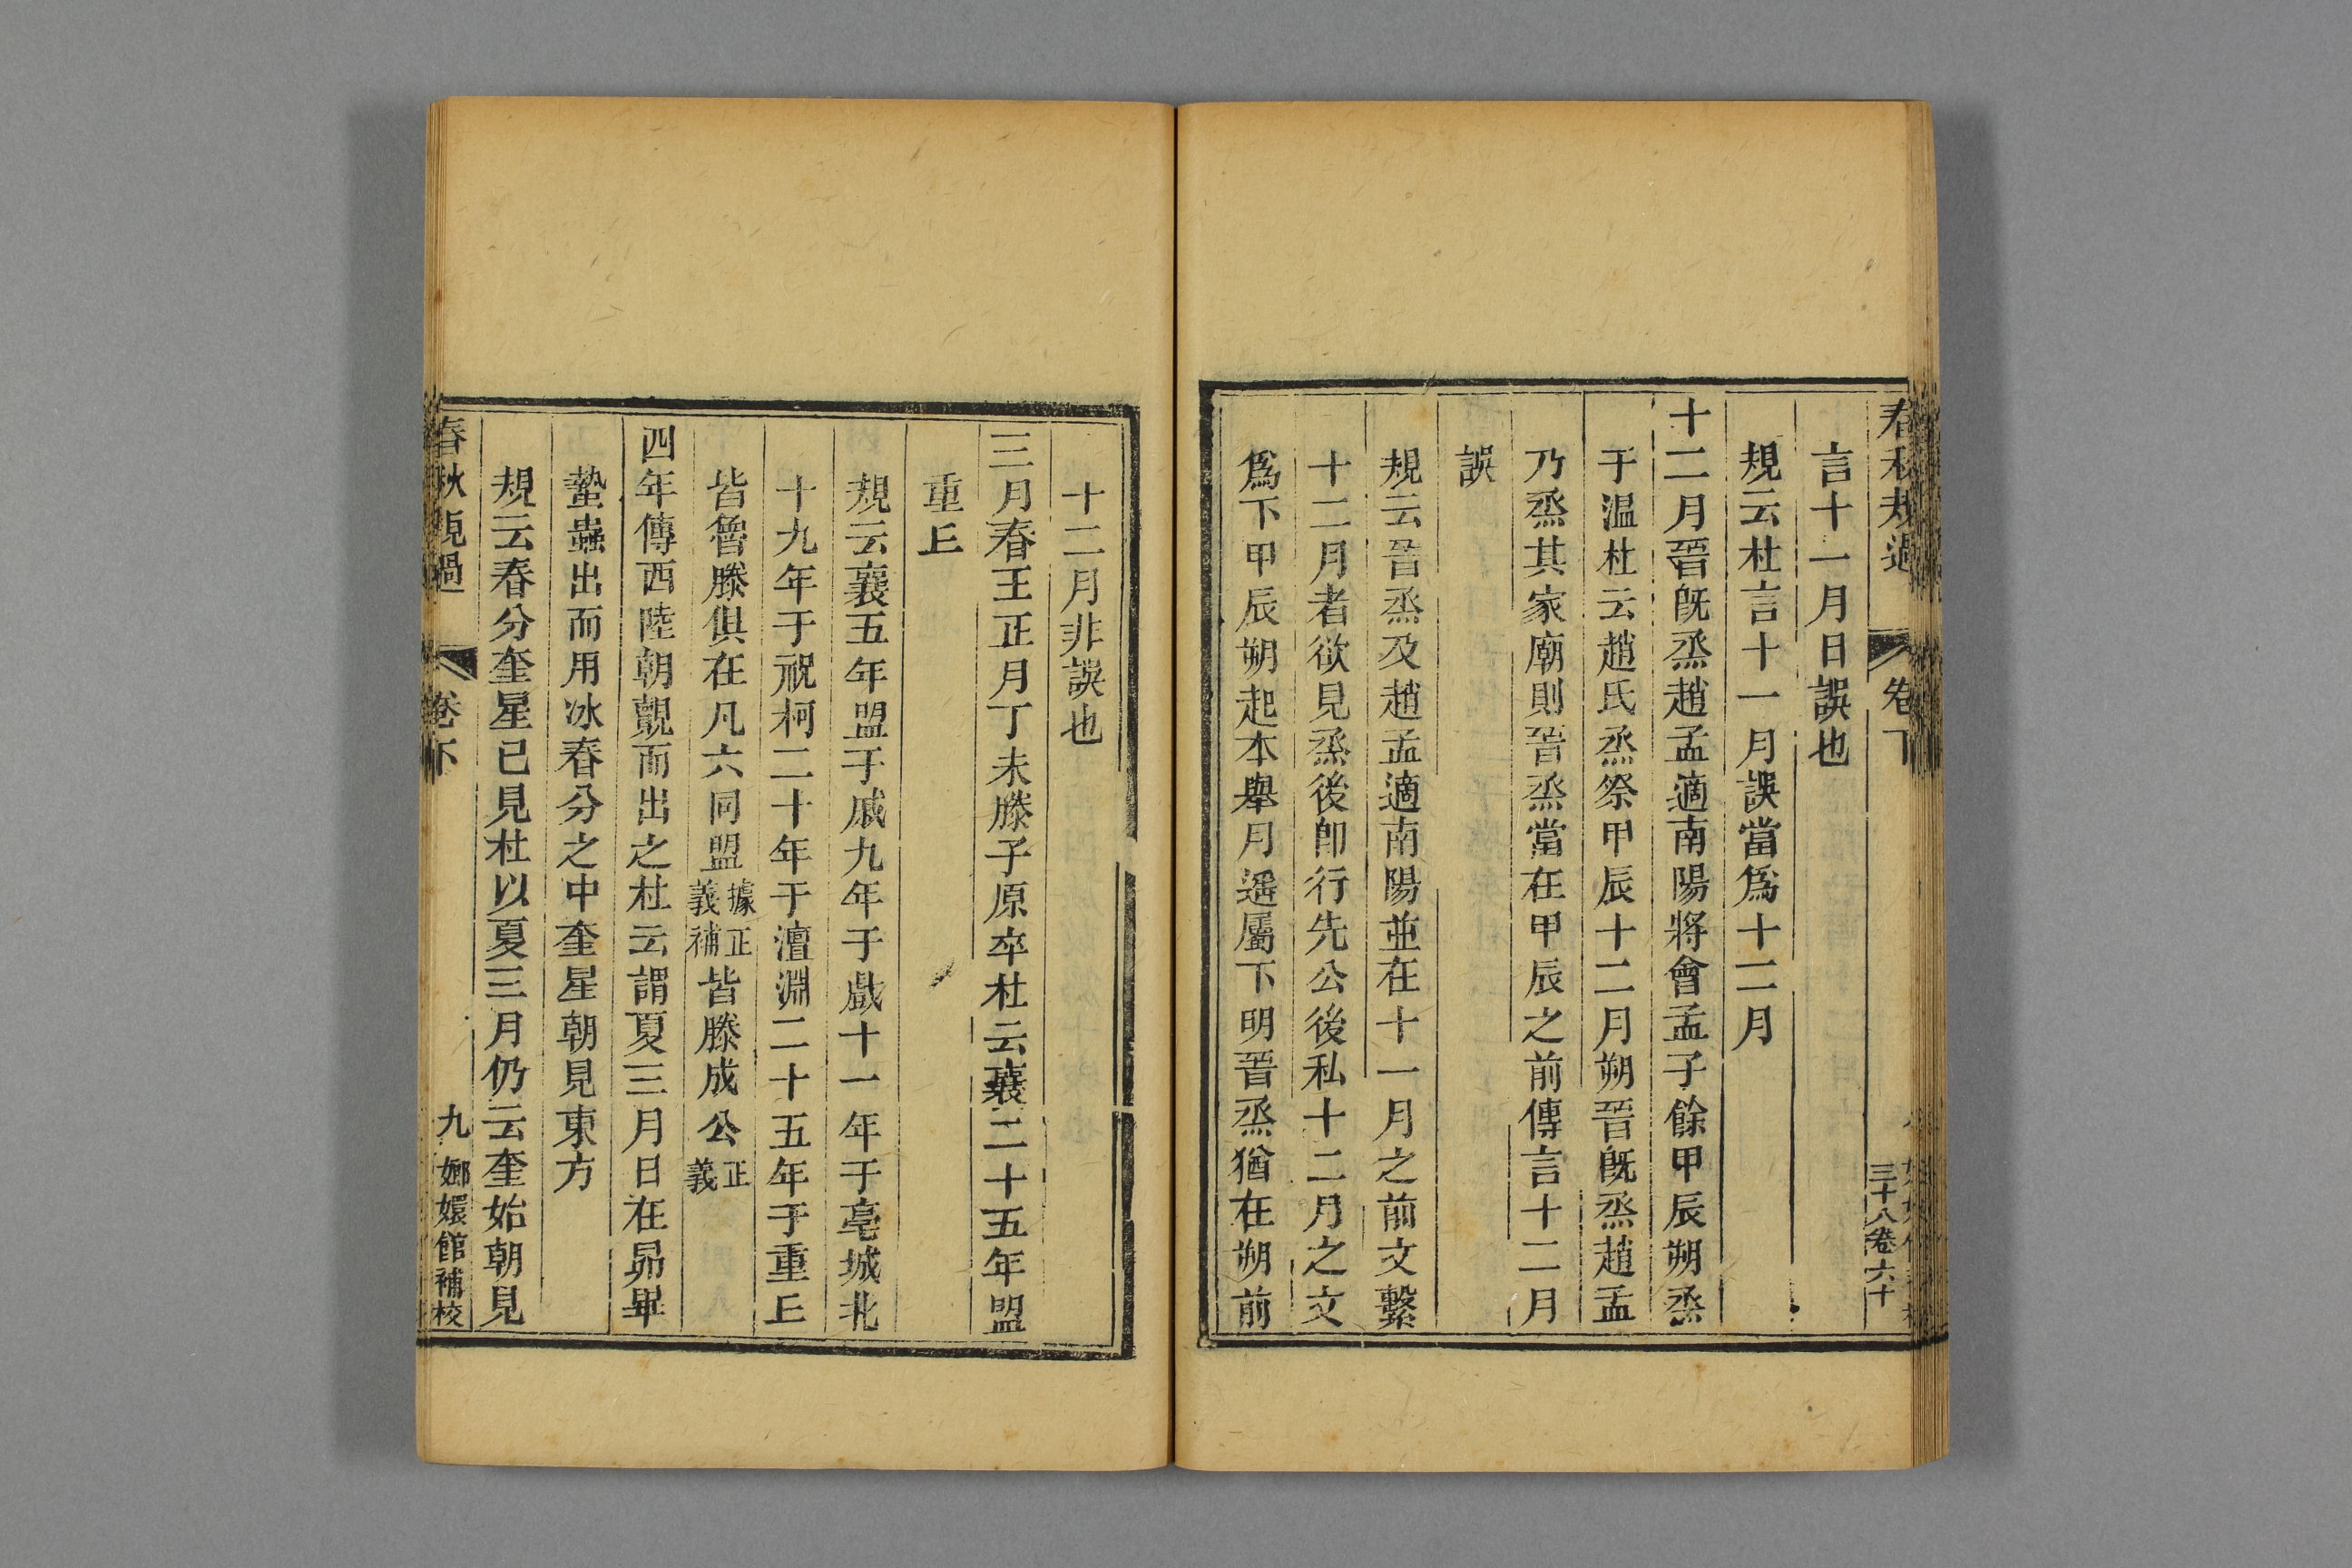 春秋規過 卷下
三十八卷六十
言十一月日誤也
規云杜言十一月誤當爲十二月
十二月晉旣烝趙孟適南陽將會孟子餘甲辰朔烝
于温杜云趙氏烝祭甲辰十二月朔晉旣烝趙孟
乃烝其家廟則晉烝當在甲辰之前傳言十二月
誤
規云晉烝及趙孟適南陽並在十一月之前文繫
十二月者欲見烝後卽行先公後私十二月之文
爲下甲辰朔起本舉月遥屬下明晉烝猶在朔前
十二月非誤也
三月春王正月丁未滕子原卒杜云襄二十五年盟
重丘
規云襄五年盟于戚九年于戲十一年于亳城北
十九年于祝柯二十年于澶淵二十五年于重丘
皆魯滕俱在凡六同盟據正義補皆滕成公正義
四年傳西陸朝覿而出之杜云謂夏三月日在昴畢
蟄蟲出而用冰春分之中奎星朝見東方
規云春分奎星已見杜以夏三月仍云奎始朝見
春秋規過 卷下 九 嫏嬛館補校